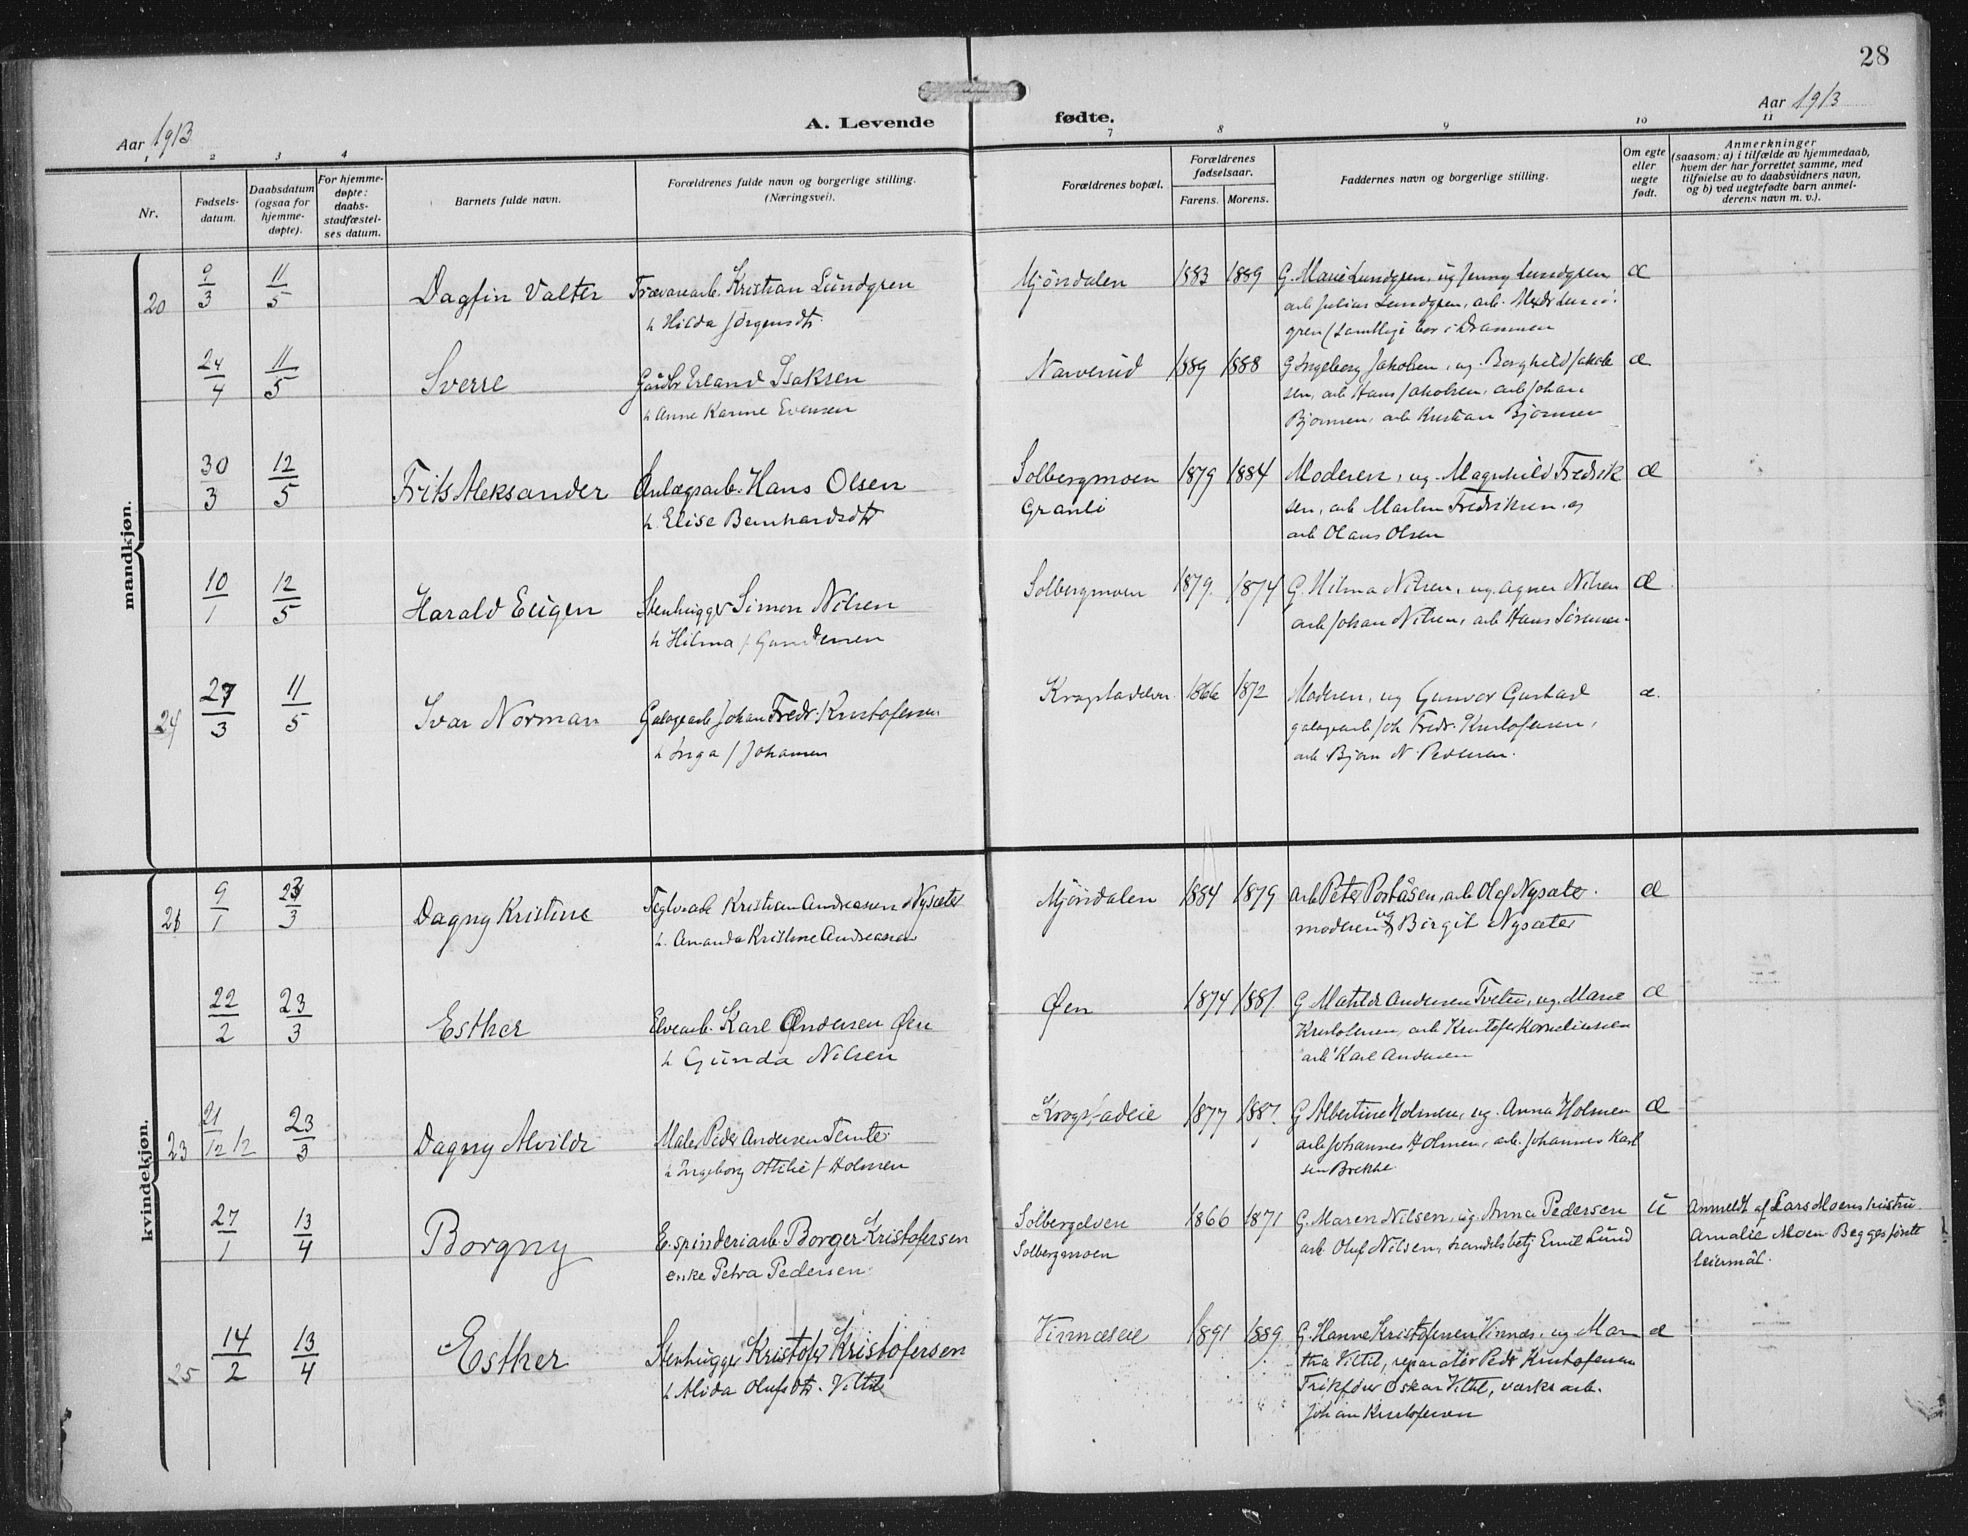 28
Aar 1913
A. Levende fødte.
Aar 1913
1 2 3 4 7 8 9 10 11
Nr.
Fødsels-
datum.
Daabsdatum
(ogsaa for
hjemme-
døpte).
For hjemme-
døpte:
daabs-
stadfæstel-
ses datum.
Barnets fulde navn.
Forældrenes fulde navn og borgerlige stilling.
(Næringsvei).
Forældrenes bopæl.
Forældrenes
fødselsaar.
Farens. Morens.
Faddernes navn og borgerlige stilling.
Om egte
eller
uegte
født.
Anmerkninger
(saasom: a) i tilfælde av hjemmedaab,
hvem der har forrettet samme, med
tilføielse av to daabsvidners navn,
og b) ved uegtefødte barn anmel-
derens navn m. v.).
mandkjøn.
20 9/3 11/5 Dagfin Valter Trævarearb. Kristian Lundgren Mjøndalen 1883 1889 G. Marie Lundgren, ug Jenny Lundgren æ
h Hilda Jørgensdtr. arb Julius Lundgren, arb.
gren (samtlige bor i Drammen
24/4 11/5 Sverre Gårdbr Erland Isaksen Narverud 1889 1888 G Ingeborg Jakobsen, ug. Borghild Jakob æ
h Anne Karine Evensen sen, arb Hans Jakobsen, arb Johan
Bjørnsen, arb Kristian Bjørnsen
30/3 12/5 Frits Aleksander Anlægsarb. Hans Olsen Solbergmoen 1879 1884 Moderen, ug. Magnhild Fredrik æ
h. Elise Bernhardsdtr Granli sen, arb Martin Fredriksen, og
arb Olaus Olsen
10/1 12/5 Harald Eugen Stenhugger Simon Nilsen Solbergmoen 1879. 1874 G. Hilma Nilsen, ug. Agnes Nilsen æ
h Hilma f Gundersen arb Johan Nilsen, arb Hans Sørensen
24 27/3 11/5 Ivar Norman Galogearb Johan Fredr. Kristofersen 1866 1872 Moderen, ug Gunvor Gustad æ.
h Inga f Johansen galogearb Joh Fredr. Kristofersen,
arb Bjarn N. Pedersen.
kvindekjøn.
21 9/1 23/3 Dagny Kristine Teglverarb Kristian Andreassen Nysæter Mjøndalen 1884 1879 arb Peter Portåsen, arb Olof Nysæter. æ
h. Amanda Kristine Andreassen moderen og Birgit Nysæter
22/2 23/3 Esther Elvearb. Karl Andersen Øen Øen 1874 1881 G Matilde Andersen Tveten, ug. Marie æ
h Gunda Nilsen Kristofersen, arb Kristofer Korneliussen
arb Karl Andersen
23 21/12 12 23/3 Dagny Alvilde Maler Peder Andersen Temte Krogstadeie 1877 1887. G Albertine Holmen, ug. Anna Holmen æ
h Ingeborg Ottilie f Holmen arb Johannes Holmen, arb. Johannes Karl
sen Brekke
27/1 13/4 Borgny E. spinderiarb. Borger Kristofersen Solbergelven 1866 1871 G. Maren Nilsen, ug. Anna Pedersen u Anmeldt af Lars Moens hustru
enke Petra Pedersen. Solbergmoen arb Oluf Nilsen, handelsbetj Emil Lund Amalie Moen. Begges første
leiermål.
25 14/2 13/4 Esther Stenhugger Kristofer Kristofersen Vinnæseie 1891 1889 G. Hanne Kristofersen Vinnæs, ug Mar æ
h Alida Olufsdtr. Viltil tha Viltil, reparatør Pedr Kristofersen
Oskar Viltil, værksarb.
Johan Kristofersen